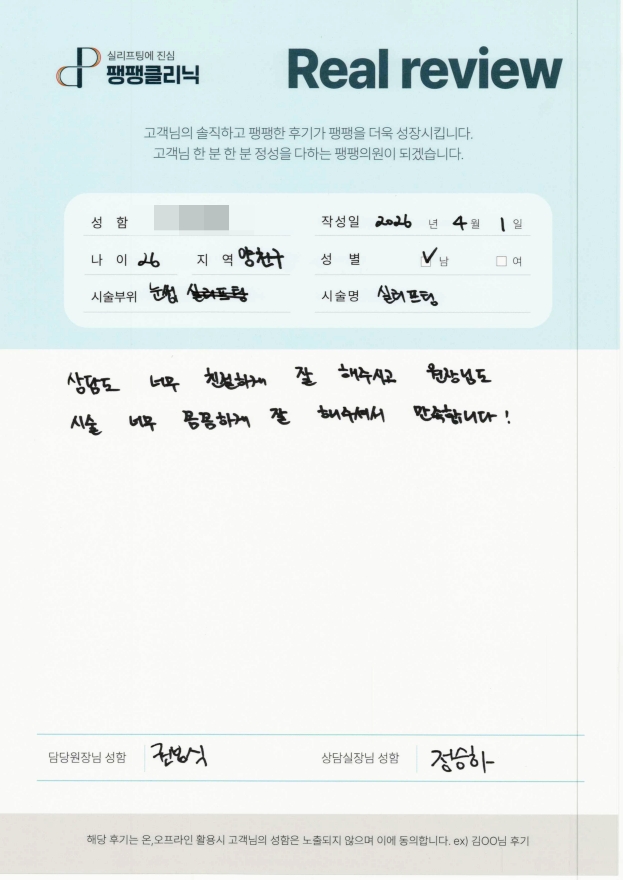 실리프팅에 진심
팽팽클리닉
Real review
고객님의 솔직하고 팽팽한 후기가 팽팽을 더욱 성장시킵니다.
고객님 한 분 한 분 정성을 다하는 팽팽의원이 되겠습니다.
성 함
작성일 2026 년 4 월 1 일
나 이 26 지 역 양천구
성 별 남 여
시술부위 눈썹 실리프팅
시술명 실리프팅
상담도 너무 친절하게 잘 해주시고 원장님도
시술 너무 꼼꼼하게 잘 해주셔서 만족합니다!
담당원장님 성함 권봉식
상담실장님 성함 정승하
해당 후기는 온,오프라인 활용시 고객님의 성함은 노출되지 않으며 이에 동의합니다. ex) 김OO님 후기